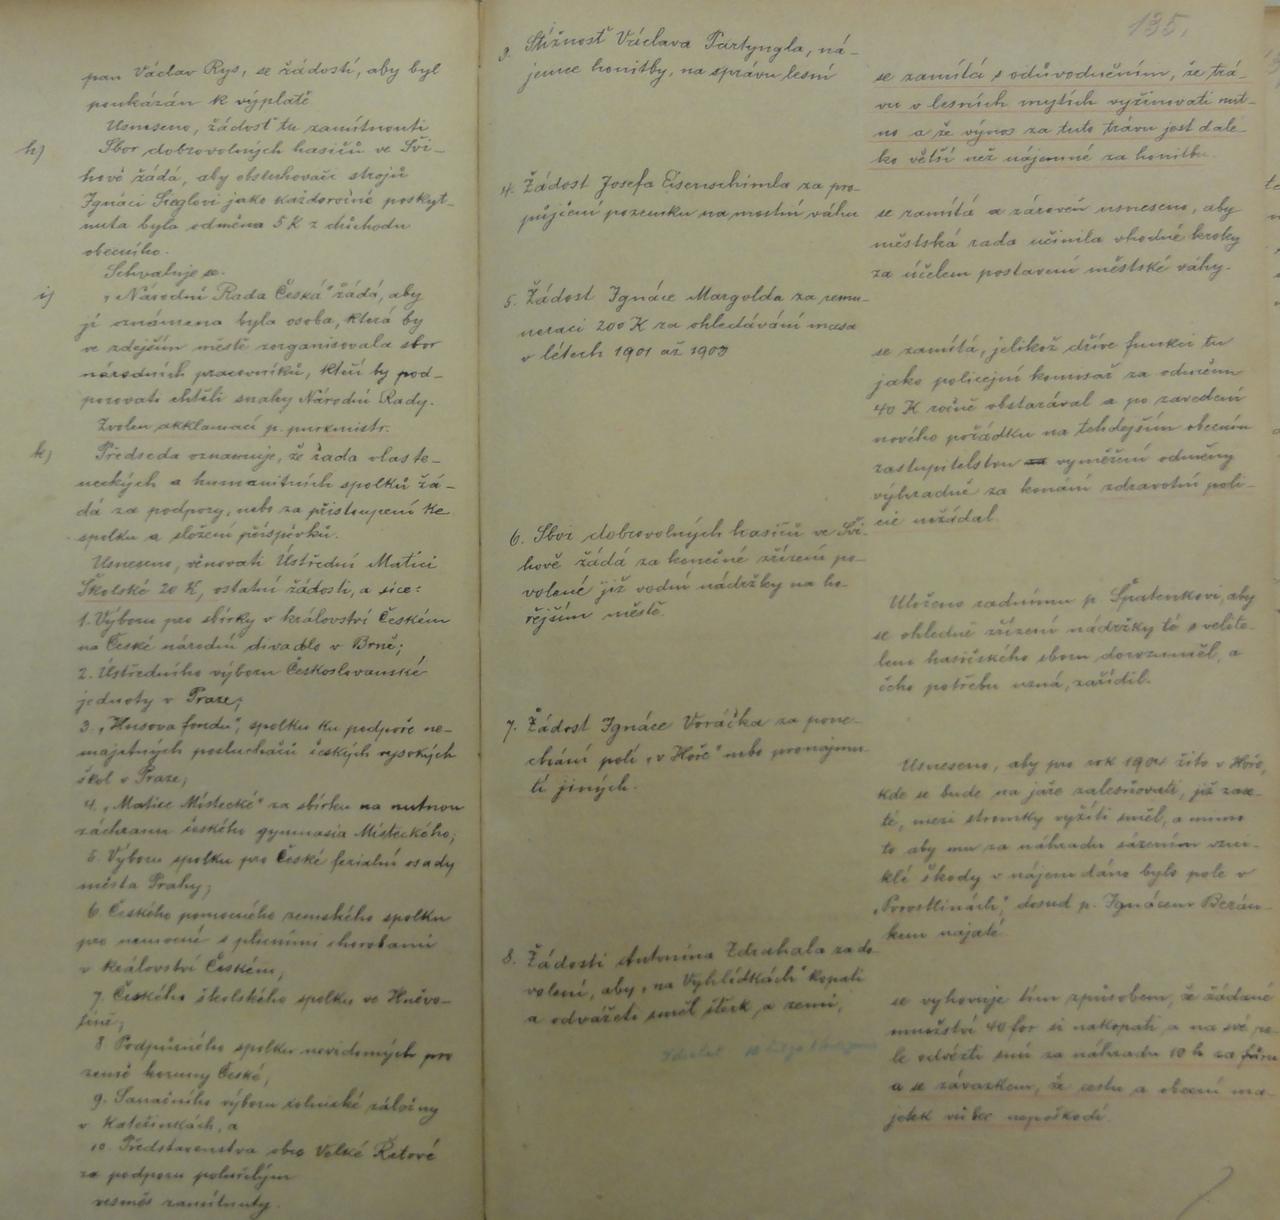 pan Václav Rys, se žádostí, aby byl
poukázán k výplatě
Usneseno, žádosť tu zamítnouti
h) Sbor dobrovolných hasičů ve Švi-
hově žádá, aby obsluhovači strojů
Ignáci Sieglovi jako každoročně poskyt-
nuta byla odměna 5 K z důchodu
obecního.
Schvaluje se.
i) „Národní Rada Česká" žádá, aby
jí oznámena byla osoba, která by
ve zdejším městě zorganisovala sbor
národních pracovníků, kteří by pod-
porovati chtěli snahy Národní Rady.
Zvolen akklamací p. purkmistr.
k) Předseda oznamuje, že řada vlaste-
neckých a humanitních spolků žá-
dá za podpory, nebo za přistoupení ke
spolku a složení příspěvků.
Usneseno, věnovati Ústřední Matici
Školské 20 K, ostatní žádosti, a sice:
1. Výboru pro sbírky v království Českém
na České národní divadlo v Brně;
2. Ústředního výboru Českoslovanské
jednoty v Praze;
3. „Husova fondu", spolku ku podpoře ne-
majetných posluchačů českých vysokých
škol v Praze;
4. „Matice Místecké" za sbírku na nutnou
záchranu českého gymnasia Místeckého;
5. Výboru spolku pro České feriální osady
města Prahy;
6. Českého pomocného zemského spolku
pro nemocné s plicními chorobami
v království Českém;
7. Českého školského spolku ve Hněvo-
tíně;
8. Podpůrného spolku nevidomých pro
země koruny České;
9. Sanačního výboru rolnické záložny
v Kateřinkách, a
10. Představenstva obce Velké Řetové
za podporu pohořelým
vesměs zamítnuty.
135.
3. Stížnosť Václava Partyngla, ná-
jemce honitby, na správu lesní
se zamítá s odůvodněním, že trá-
vu v lesních mýtích vyžínovati nut-
no a že výnos za tuto trávu jest dale-
ko větší než nájemné za honitbu.
4. Žádost Josefa Eisenschimla za pro-
půjčení pozemku na mostní váhu
se zamítá a zároveň usneseno, aby
městská rada učinila vhodné kroky
za účelem postavení městské váhy.
5. Žádost Ignáce Margolda za remu-
neraci 200 K za ohledávání masa
v létech 1901 až 1903
se zamítá, jelikož dříve funkci tu
jako policejní komisař za odměnu
40 K ročně obstarával a po zavedení
nového pořádku na tehdejším obecním
zastupitelstvu vyměření odměny
výhradně za konání zdravotní poli-
cie nežádal.
6. Sbor dobrovolných hasičů ve Švi-
hově žádá za konečné zřízení po-
volené již vodní nádržky na ho-
řejším městě.
Uloženo radnímu p. Špatenkovi, aby
se ohledně zřízení nádržky té s velite-
lem hasičského sboru dorozuměl, a
čeho potřebu uzná, zařídil.
7. Žádost Ignáce Voráčka za pone-
chání polí „v Hoře" nebo pronajmu-
tí jiných.
Usneseno, aby pro rok 1904 žito v Hoře,
kde se bude na jaře zalesňovati, již zase-
té, mezi stromky vyžíti směl, a mimo
to aby mu za náhradu sázením vzni-
klé škody v nájem dáno bylo pole v
„Porostlinách", dosud p. Ignácem Berán-
kem najaté.
8. Žádosti Antonína Zdrahala za do-
volení, aby „na Vyhlídkách" kopati
a odvážeti směl štěrk a zemi,
se vyhovuje tím způsobem, že žádané
množství 40 for si nakopati a na své po-
le odvézti smí za náhradu 10 h za fůru
a se závazkem, že cestu a obecní ma-
jetek vůbec nepoškodí.